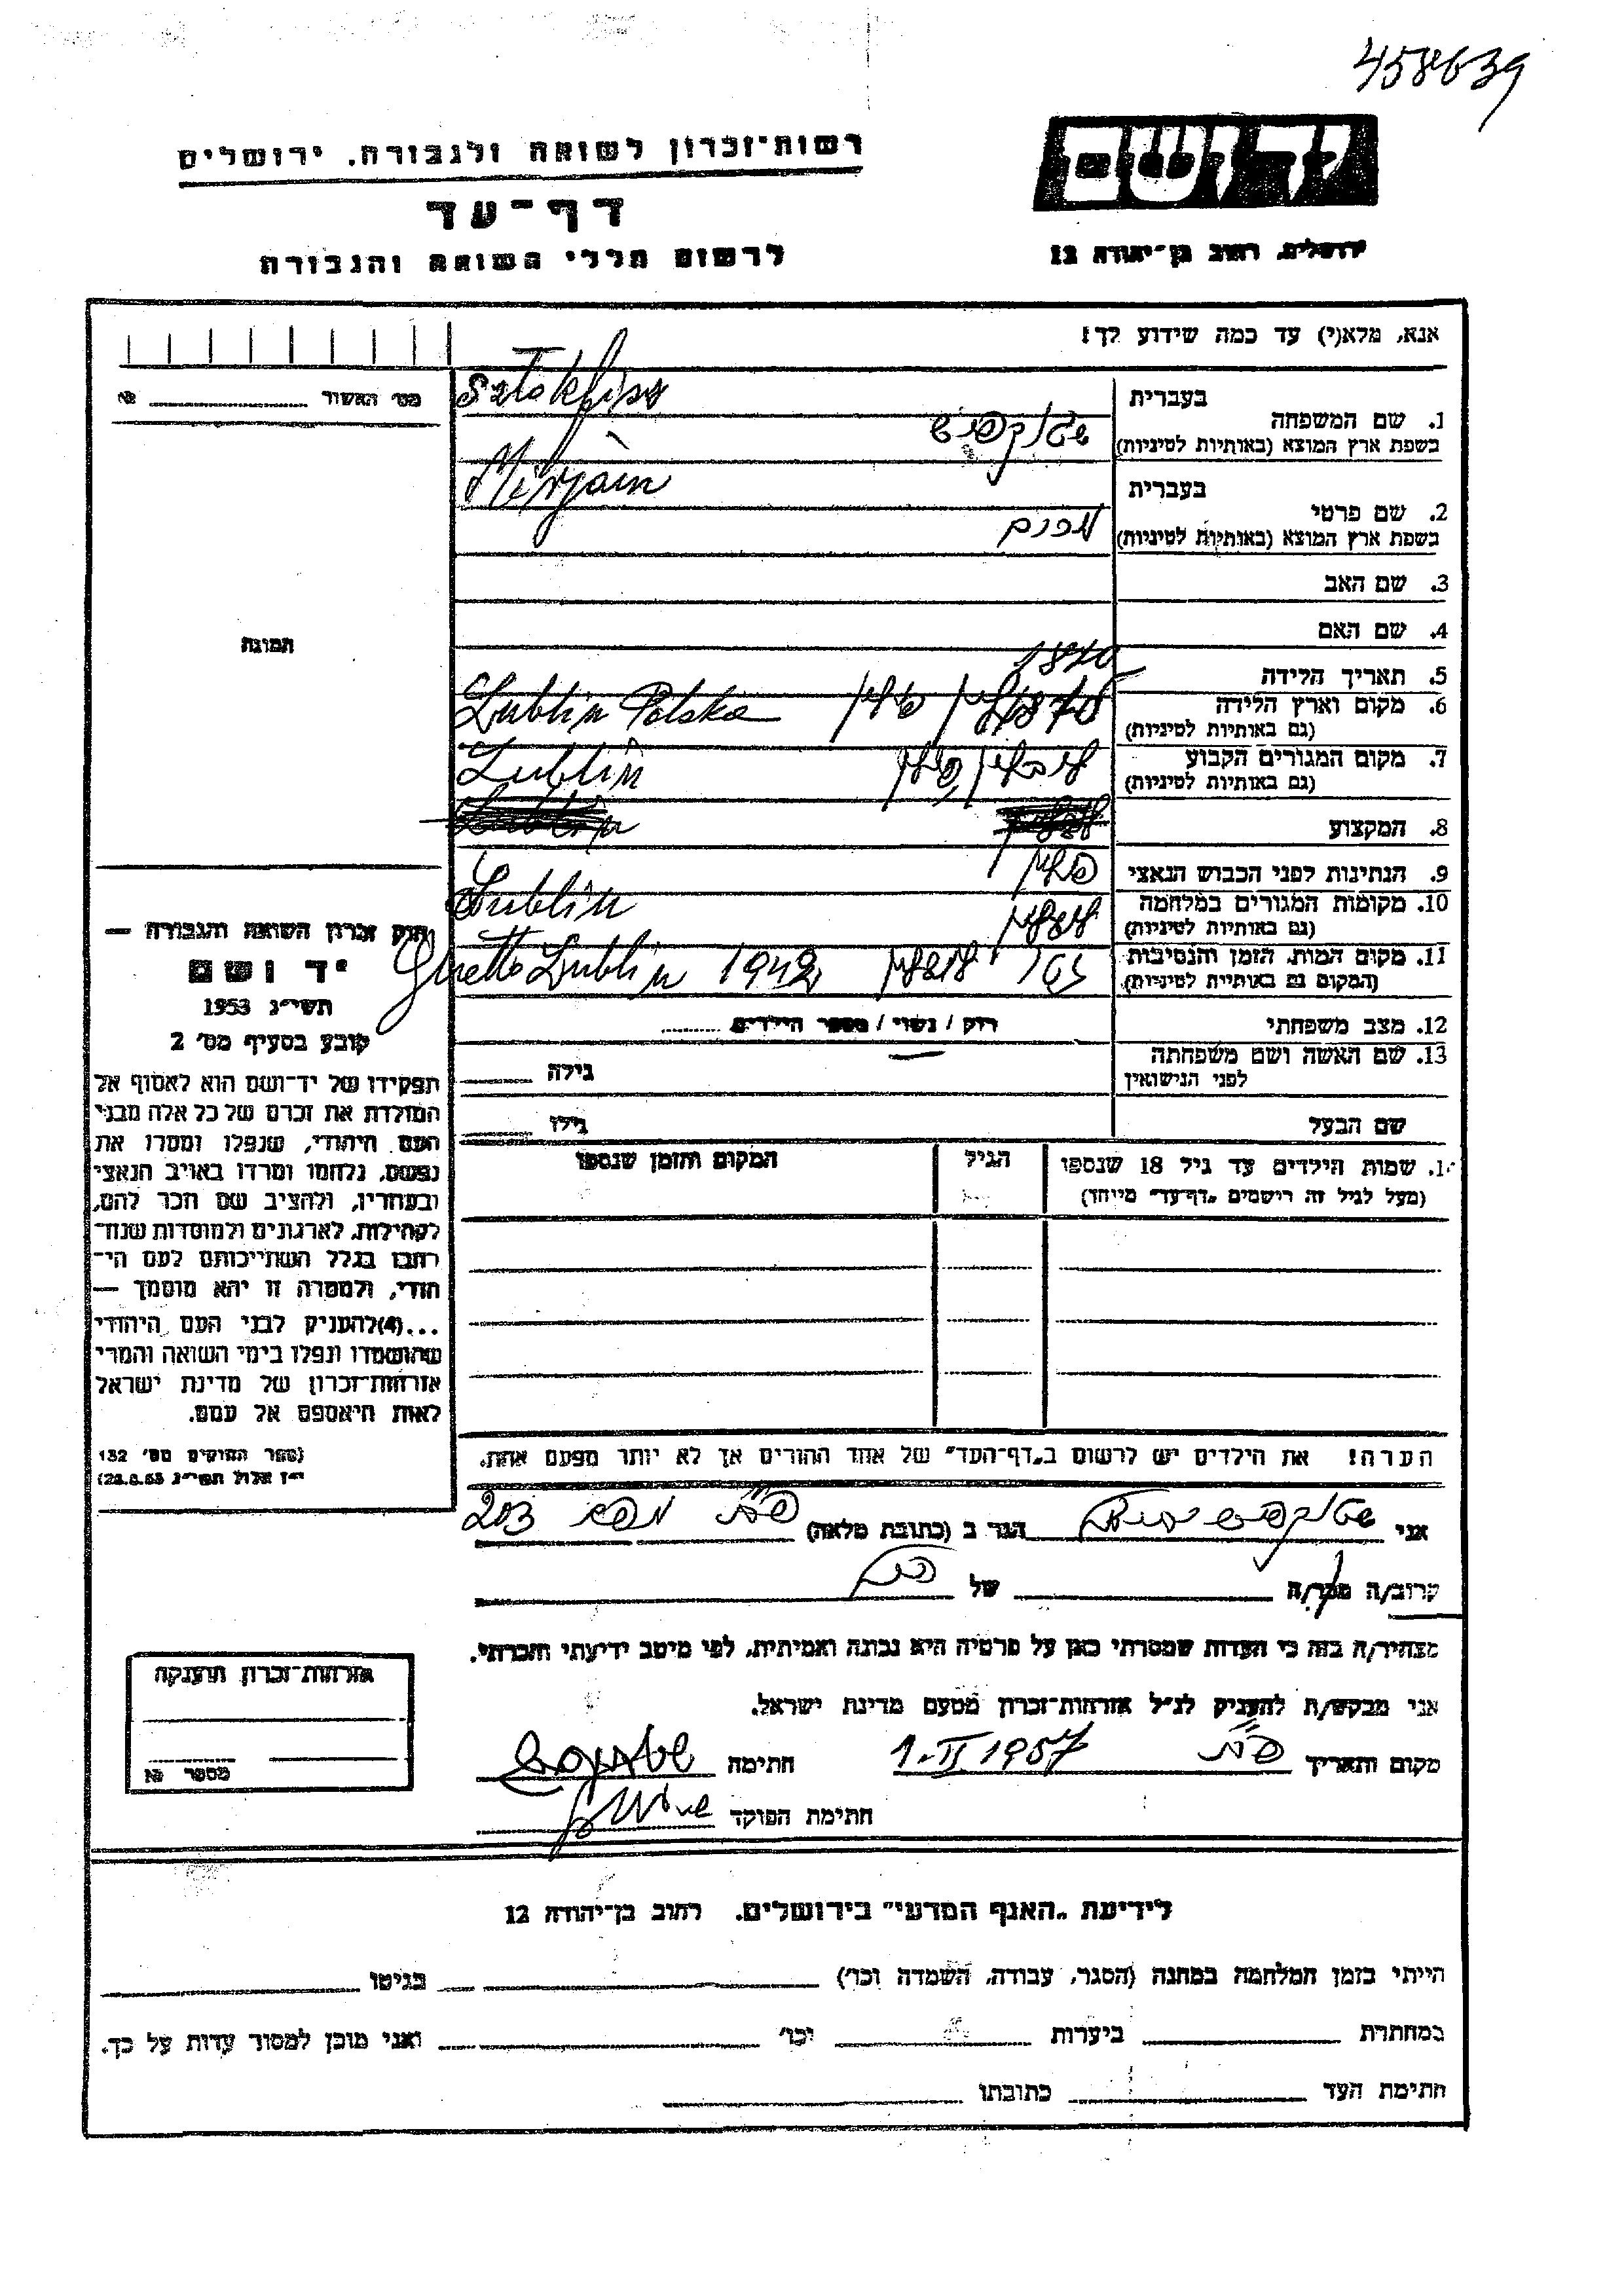 458639
יד ושם
רשות־זכרון לשואה ולגבורה, ירושלים
דף־עד
ירושלים, רחוב בן־יהודה 12
לרשום חללי השואה והגבורה
אנא, מלא(י) עד כמה שידוע לך!
מס׳ האשור № 
בעברית Sztokfisz
1. שם המשפחה שטוקפיש
בשפת ארץ המוצא (באותיות לטיניות)
בעברית Mirjam
2. שם פרטי
בשפת ארץ המוצא (באותיות לטיניות)
3. שם האב
4. שם האם
התמונה
5. תאריך הלידה 1870
6. מקום וארץ הלידה פולין Lublin Polska
(גם באותיות לטיניות)
7. מקום המגורים הקבוע לובלין פולין Lublin
(גם באותיות לטיניות)
8. המקצוע
9. הנתינות לפני הכבוש הנאצי פולין
10. מקומות המגורים במלחמה לובלין Lublin
(גם באותיות לטיניות)
11. מקום המות, הזמן והנסיבות גטו לובלין 1942 Ghetto Lublin
(המקום גם באותיות לטיניות)
12. מצב משפחתי רוק / נשוי / מספר הילדים
13. שם האשה ושם משפחתה גילה
לפני הנישואין
שם הבעל גילו
14. שמות הילדים עד גיל 18 שנספו הגיל המקום והזמן שנספו
(מעל לגיל זה רישמים „דף־עד״ מייחד)
חוק זכרון השואה והגבורה —
יד ושם
תשי״ג 1953
קובע בסעיף מס׳ 2
תפקידו של יד־ושם הוא לאסוף אל
המולדת את זכרם של כל אלה מבני
העם היהודי, שנפלו ומסרו את
נפשם, נלחמו ומרדו באויב הנאצי
ובעוזריו, ולהציב שם וזכר להם,
לקהילות, לארגונים ולמוסדות שנח־
רבו בגלל השתייכותם לעם הי־
הודי, ולמטרה זו יהא מוסמך —
...(4)להעניק לבני העם היהודי
שהושמדו ונפלו בימי השואה והמרי
אזרחות־זכרון של מדינת ישראל
לאות היאספם אל עמם.
(ספר החוקים מס׳ 132
י״ז אלול תשי״ג 28.8.53)
הערה! את הילדים יש לרשום ב„דף־העד״ של אחד ההורים אך לא יותר מפעם אחת.
אני שטוקפיש הגר ב (כתובת מלאה) 203
קרוב/ה מכר/ה של
מצהיר/ה בזה כי העדות שמסרתי כאן על פרטיה היא נכונה ואמיתית, לפי מיטב ידיעתי והכרתי.
אני מבקש/ת להעניק לנ״ל אזרחות־זכרון מטעם מדינת ישראל.
מקום ותאריך 1.II 1957 חתימה
חתימת הפוקד
אזרחות־זכרון הוענקה
מספר №
לידיעת „האגף המדעי״ בירושלים. רחוב בן־יהודה 12
הייתי בזמן המלחמה במחנה (הסגר, עבודה, השמדה וכו׳) בגיטו
במחתרת ביערות וכו׳ ואני מוכן למסור עדות על כך.
חתימת העד כתובתו